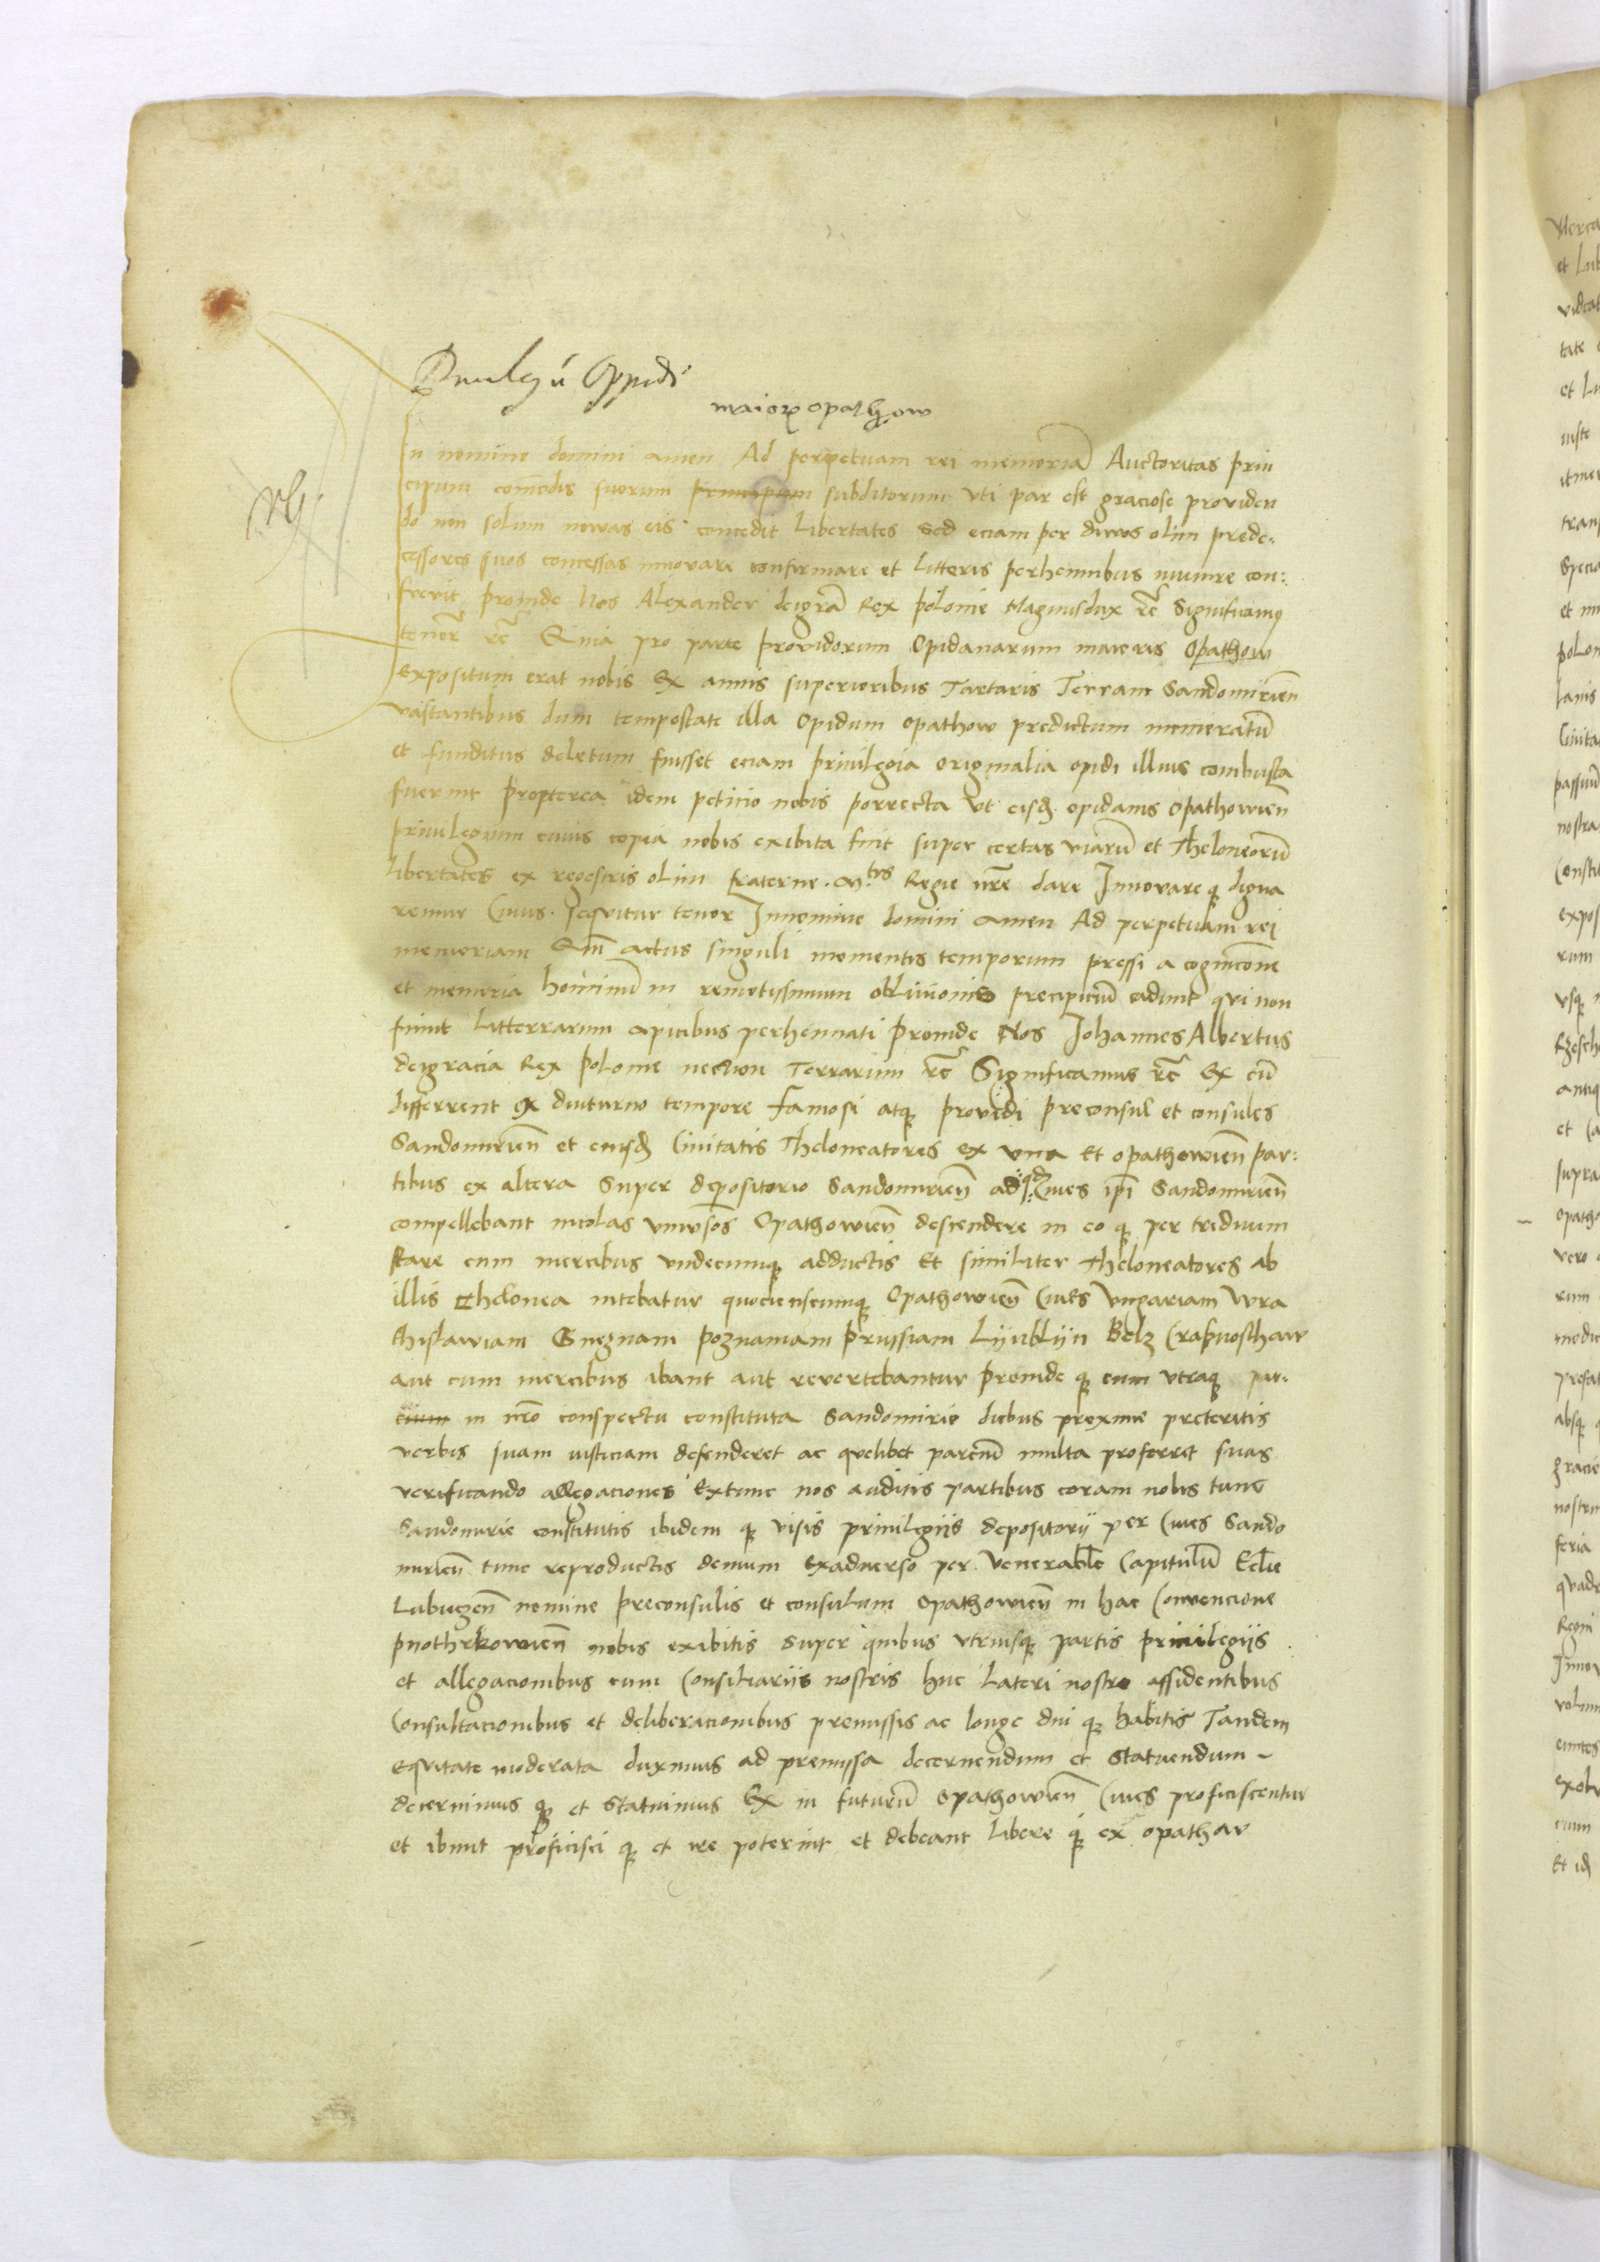 Priuilegiũ Oppidi
maioris opathow
In nomine domini amen Ad perpetuam rei memoriã Auctoritas prin
cipum comodis suorum principum subditorum vti par est graciose providen
do non solum nowas eis concedit libertates Sed eciam per diwos olim prede-
cessores suos concessas innovare confirmare et litteris perhennibus munire con:
sueuit proinde Nos Alexander deigrã Rex polonie Magnusdux rc̃ Significamus
tenor̃ rc̃ Quia pro parte providorum Opidanarum maioris Opathow
Expositum erat nobis Ex annis superioribus Tartaris Terram Sandomirieñ
vastantibus dum tempestate illa Opidum opathow predictum incineratũ
et funditus deletum fuisset eciam priuilegia originalia opidi illius combusta
fuerint propterea idem peticio nobis porrecta vt eisd. opidanis Opathowieñ
priuilegium cuius copia nobis exibita fuit super certas viarũ et Theloneorũ
libertates ex regestris olim fraterne M.tis Regie nr̃e dare Innovare q3 digna
remur Cuius sequitur tenor Innomine domini amen Ad perpetuam rei
memoriam Qm̃ actus singuli momentis temporum pressi a cognicõne
et memoria hominũ in remotissimum obliuionis precipiciũ cadunt qvi non
fiunt litterrarum apicibus perhennati proinde Nos Johannes Albertus
deigracia Rex polonie necnon Terrarum rc̃ Significamus rc̃ Ex cũ
differrent ex diuturno tempore famosi atq3 providi preconsul et consules
Sandomirieñ et eiusd Ciuitatis Theloneatores ex vna Et opathowieñ par:
tibus ex altera Super depositorio Sandomirieñ ad qd Ciues ip̃i Sandomirieñ
compellebant incolas vniuersos Opathowieñ descendere in eo q3 per triduum
stare cum mercibus vndecumq3 adductis Et similiter theloneatores ab
illis thelonea nitebatur quocienscumq3 Opathowieñ Ciues Vngariam Wra
thislawiam Gneznam poznaniam prussiam Lyublyn Belz Crassnosthaw
aut cum mercibus ibant aut revertebantur proinde q3 cum vtraq3 par-
cium in nr̃o conspectu constituta Sandomirie diebus proxime preteritis
verbis suam iusticiam defenderet ac quelibet parciũ multa proferret suas
verificando allegaciones Extunc nos auditis partibus coram nobis tunc
Sandomirie constitutis ibidem q3 visis priuilegiis depositorij per Ciues Sando
mirieñ tunc reproductis demum exadverso per Venerabile Capitulũ Eclie
Lubuczeñ nomine preconsulis et consulum Opathowieñ in hac Convencione
pyothrkowieñ nobis exibitis Super quibus vtriusq3 partis priuilegijs
et allegacionibus cum Consiliariis nostris huc lateri nostro assidentibus
Consultacionibus et deliberacionibus premissis ac longe diu q3 habitis Tandem
Equitate moderata duximus ad premissa decernendum et statuendum -
decernimus q3 et statuimus Ex in futurũ Opathowieñ Ciues proficiscentur
et ibunt proficisci q3 et ire poterint et debeant libere q3 ex opathaw